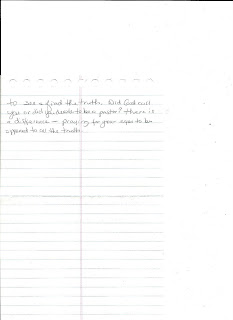 to see & find the truth. Did God call
you or did you decide to be a pastor? There is
a difference — praying for your eyes to be
opened to all the truth.